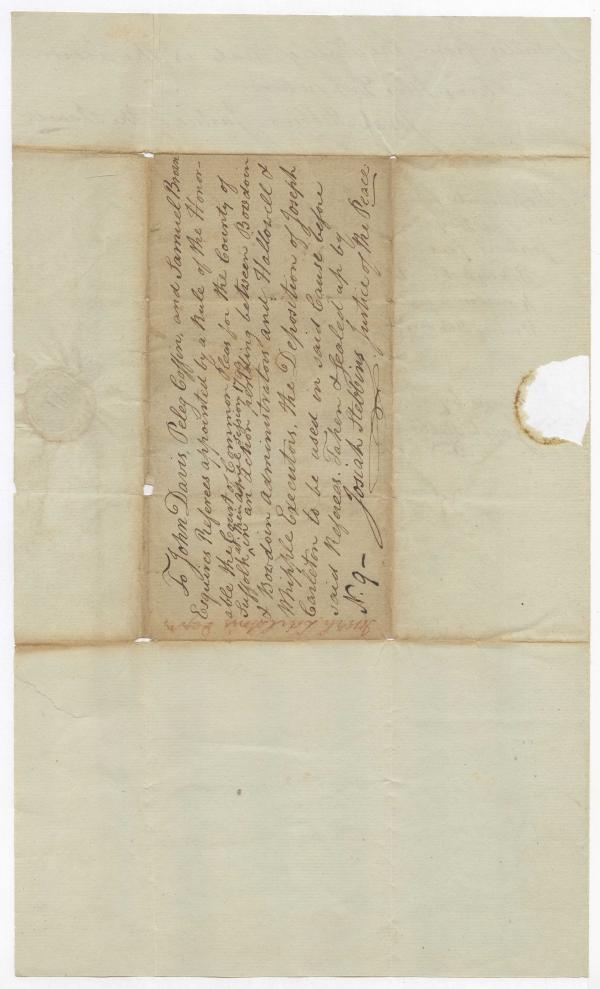 To John Davis, Peleg Coffin, and Samuel Brown
Esquires Referees appointed by a Rule of the Honor-
able the Court of Common Pleas for the County of
at their April Session
Suffolk in an Action pending between Bowdoin
& Bowdoin Administrators and Hallowell &
Whipple Executors, the Deposition of Joseph
Carleton to be used in said Cause before
said Referees. Taken & sealed up by
Josiah Stebbins Justice of the Peace
N. 9 —